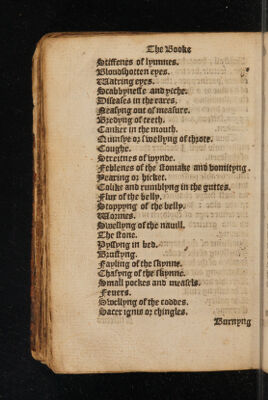 The Booke
Stiffenes of lymmes.
Bloudshotten eyes.
Watring eyes.
Scabbynesse and ytche.
Diseases in the eares.
Neasyng out of measure.
Bredyng of teeth.
Canker in the mouth.
Quinsye or swellyng of throte.
Coughe.
Streitnes of wynde.
Feblenes of the stomake and vomityng.
Yearing or hicket.
Colike and rumblyng in the guttes.
Flux of the belly.
Stoppyng of the belly.
Wormes.
Swellyng of the nauill.
The stone.
Pyssyng in bed.
Brustyng.
Fayling of the skynne.
Chafyng of the skynne.
Small pockes and measels.
Feuers.
Swellyng of the coddes.
Sacer ignis or chingles.
Burnyng